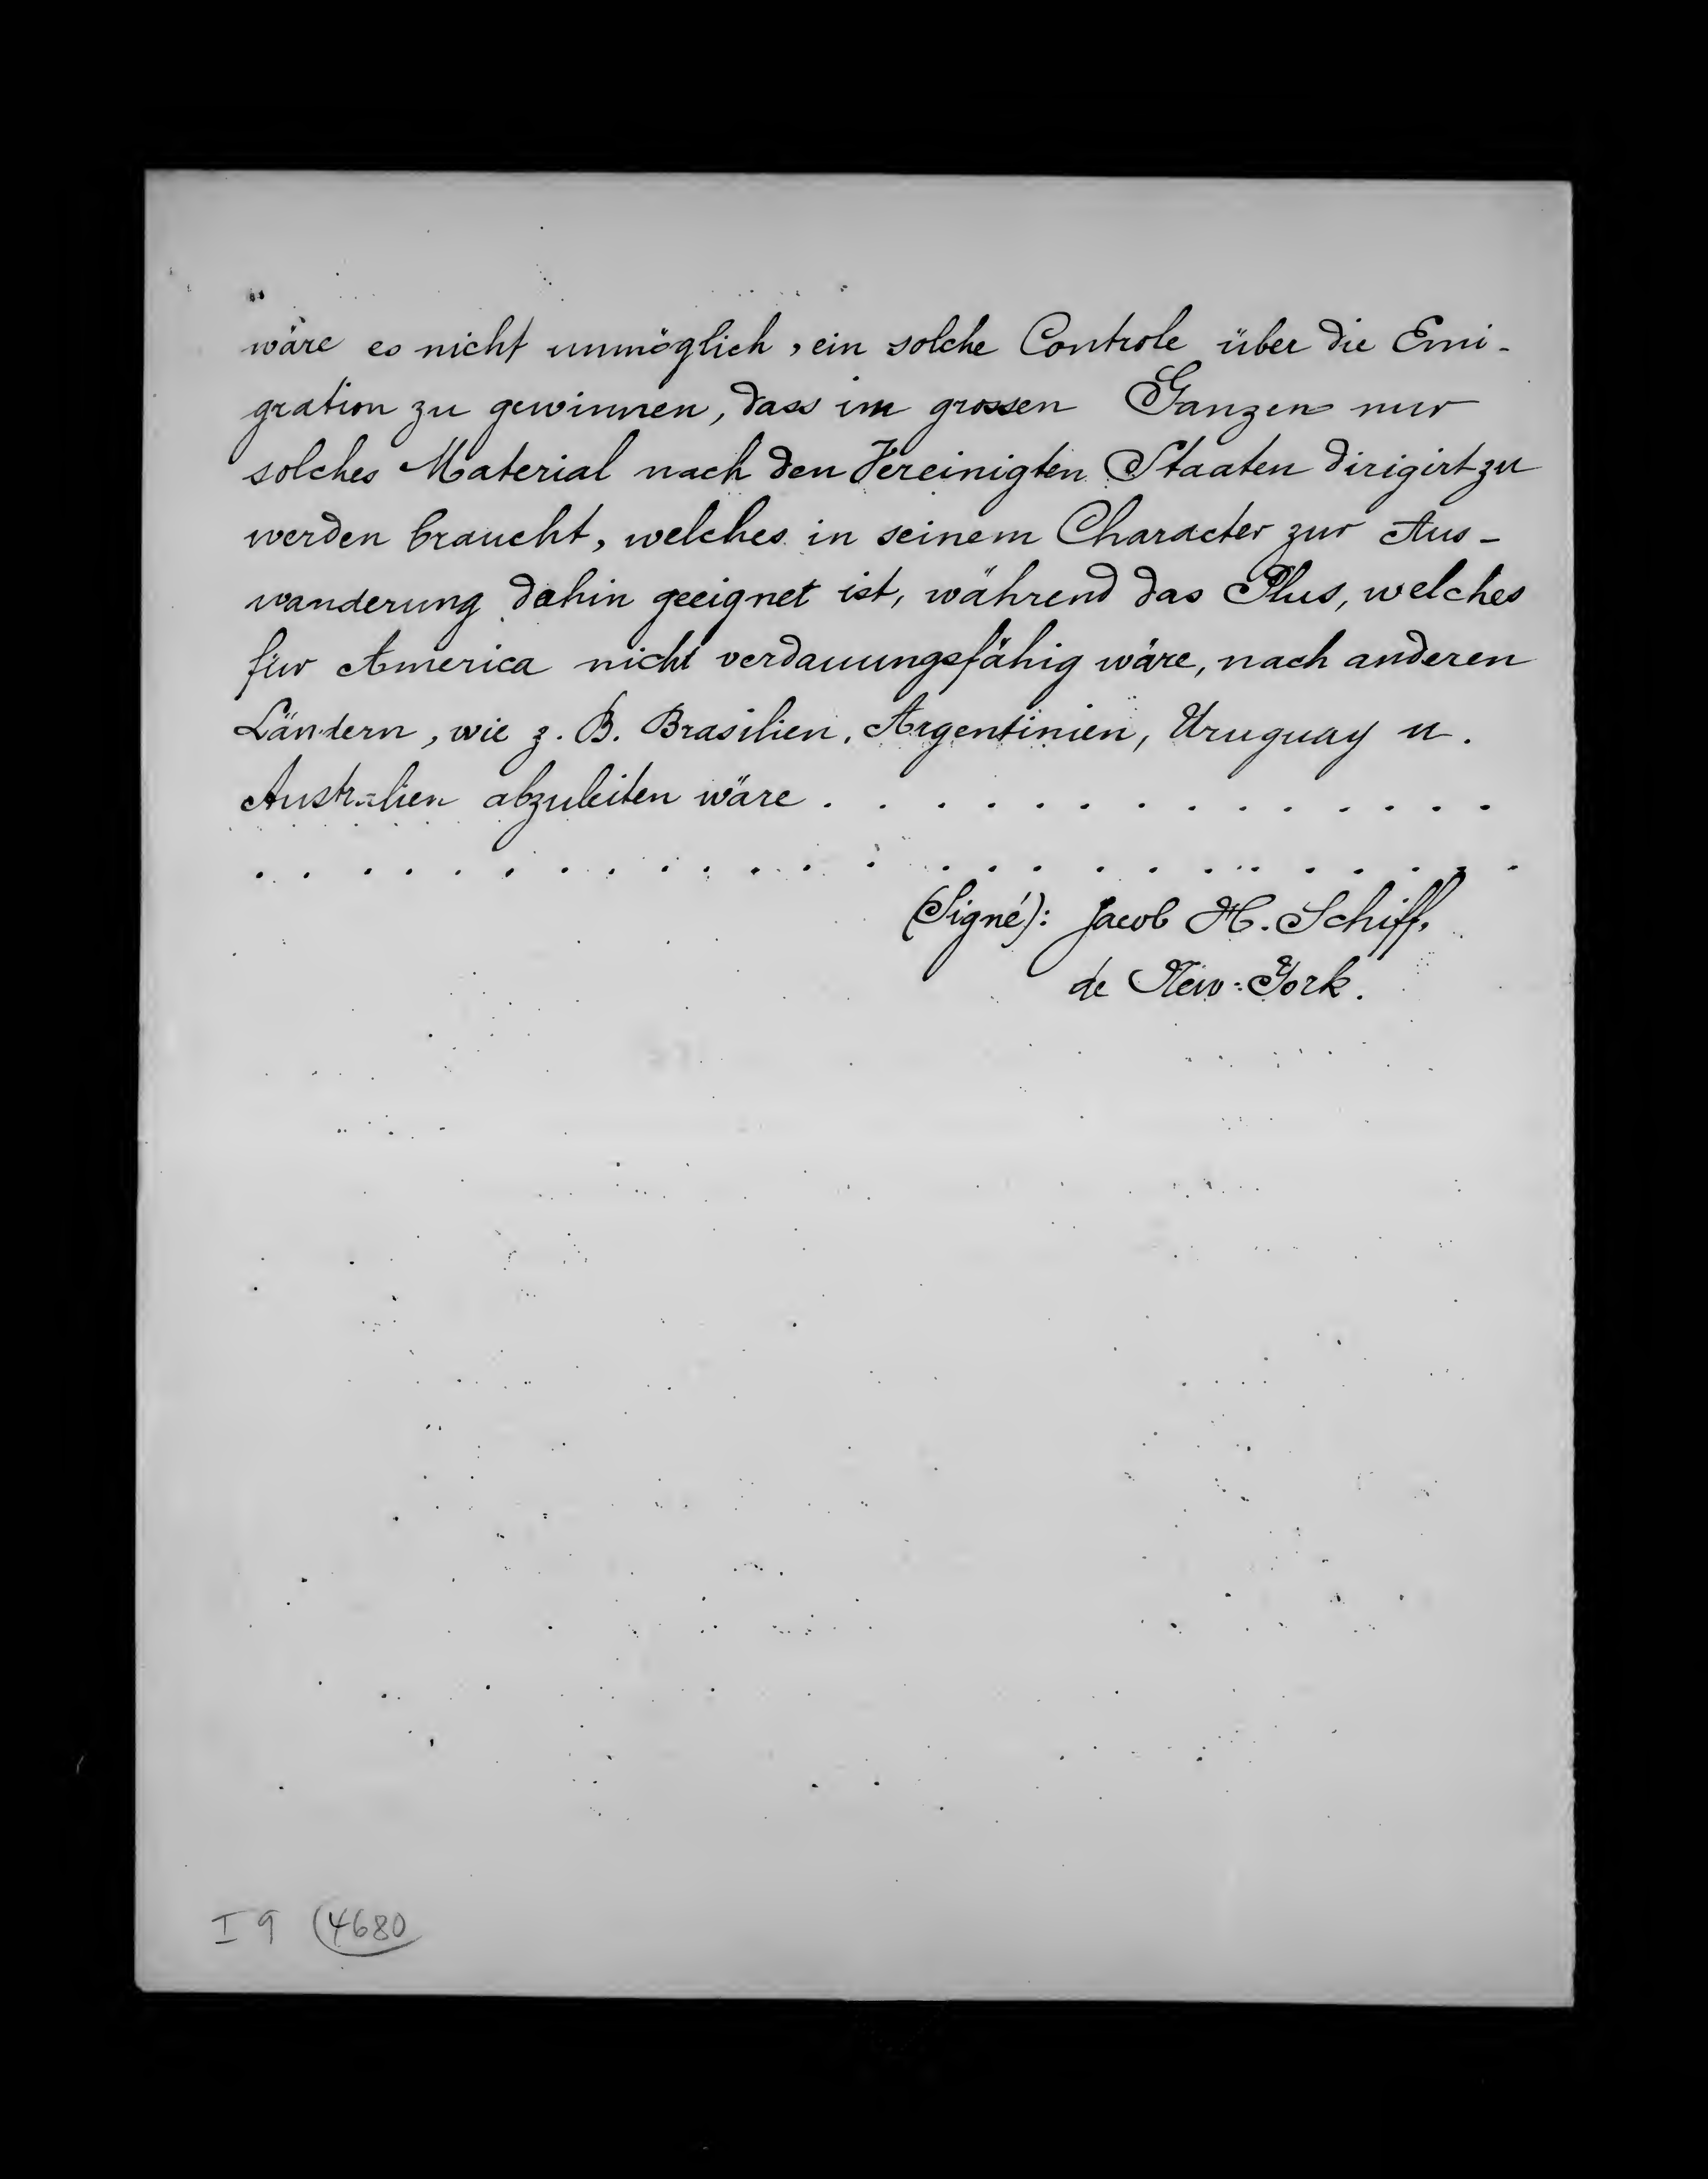 wäre es nicht unmöglich, ein solche Controle über die Emi-
gration zu gewinnen, dass im grossen Ganzen nur
solches Material nach den Vereinigten Staaten dirigirt zu
werden braucht, welches in seinem Character zur Aus-
wanderung dahin geeignet ist, während das Plus, welches
für America nicht verdauungsfähig wäre, nach anderen
Ländern, wie z. B. Brasilien, Argentinien, Uruguay u.
Australien abzuleiten wäre . . . . . . . . . . . . . .
. . . . . . . . . . . . . . . . . . . . . . . .
(Signé): Jacob H. Schiff,
de New-York.
I 9 (4680